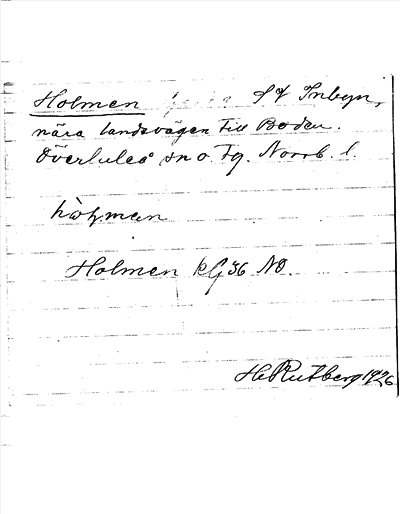 Holmen SV Inbyn,
nära landsvägen till Boden.
Överluleå sn o. tg. Norrb. l.
Holmen kG 36 NO.
H. Rutberg 1926